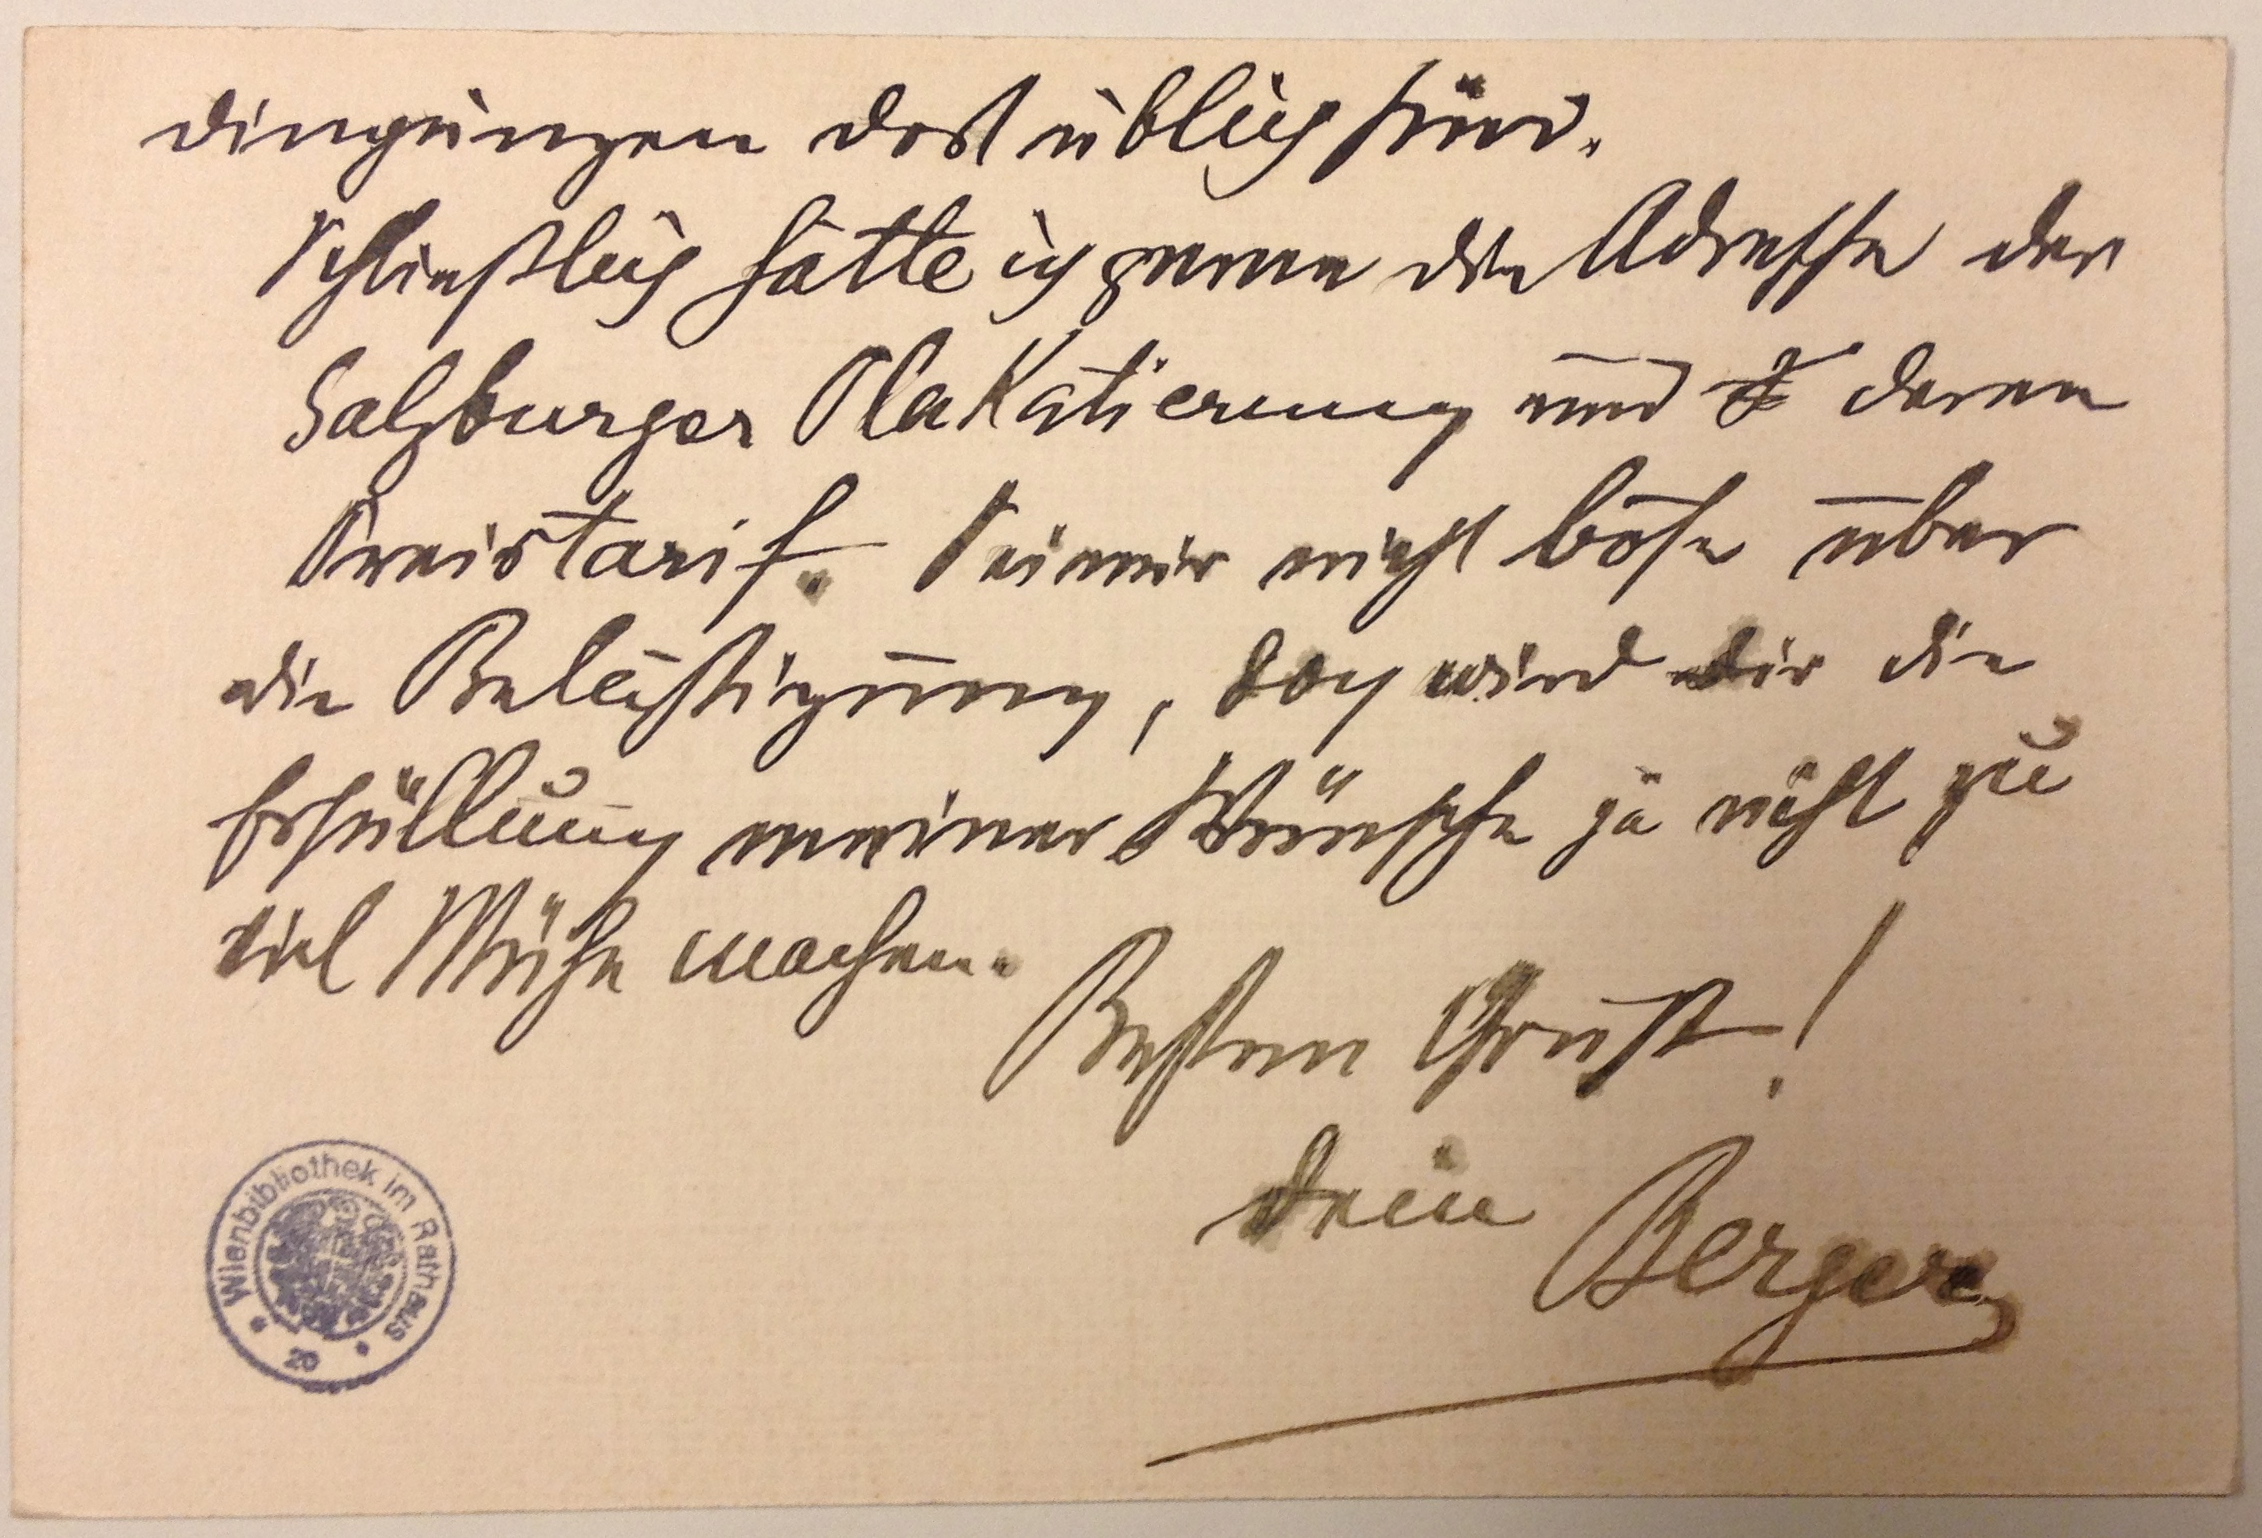 dingungen dort üblich sind.
Schließlich hätte ich gerne die Adresse der
Salzburger Plakatierung und deren
Preistarif. Sei mir nicht böse über
die Belästigung, doch wird dir die
Erfüllung meiner Wünsche ja nicht zu
viel Mühe machen.
Besten Gruß!
Dein Berger
Wienbibliothek im Rathaus
20